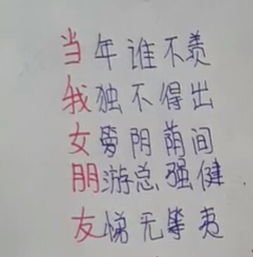 当年谁不羡
我独不得出
女爱阴荫间
朋游总强健
友悌无等夷